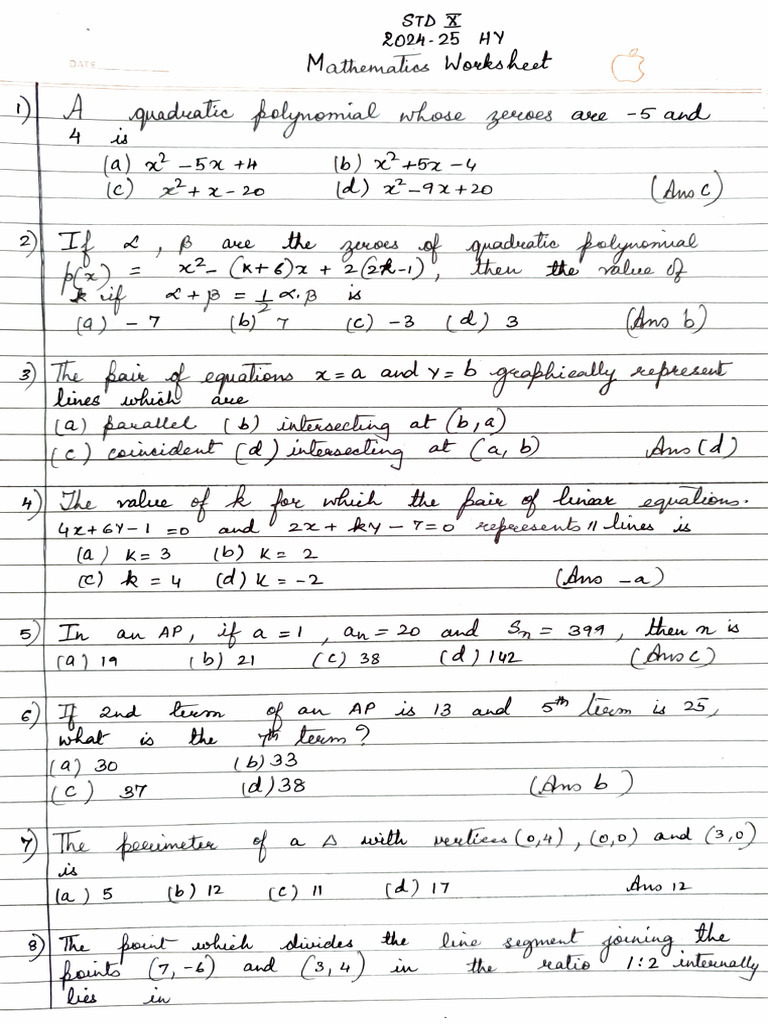 STD X
2024-25 HY
DATE
Mathematics Worksheet
1) A quadratic polynomial whose zeroes are -5 and
4 is
(a) x² - 5x + 4 (b) x² + 5x - 4
(c) x² + x - 20 (d) x² - 9x + 20 (Ans c)
2) If α, β are the zeroes of quadratic polynomial
p(x) = x² - (k+6)x + 2(2k-1), then the value of
k if α + β = 1/2 α.β is
(a) - 7 (b) 7 (c) -3 (d) 3 (Ans b)
3) The pair of equations x = a and y = b graphically represent
lines which are
(a) parallel (b) intersecting at (b, a)
(c) coincident (d) intersecting at (a, b) Ans (d)
4) The value of k for which the pair of linear equations.
4x + 6y - 1 = 0 and 2x + ky - 7 = 0 represents || lines is
(a) k = 3 (b) k = 2
(c) k = 4 (d) k = -2 (Ans - a)
5) In an AP, if a = 1, an = 20 and Sn = 399, then n is
(a) 19 (b) 21 (c) 38 (d) 142 (Ans c)
6) If 2nd term of an AP is 13 and 5th term is 25,
what is the 7th term?
(a) 30 (b) 33
(c) 37 (d) 38 (Ans b)
7) The perimeter of a Δ with vertices (0,4), (0,0) and (3,0)
is
(a) 5 (b) 12 (c) 11 (d) 17 Ans 12
8) The point which divides the line segment joining the
points (7, -6) and (3, 4) in the ratio 1:2 internally
lies in